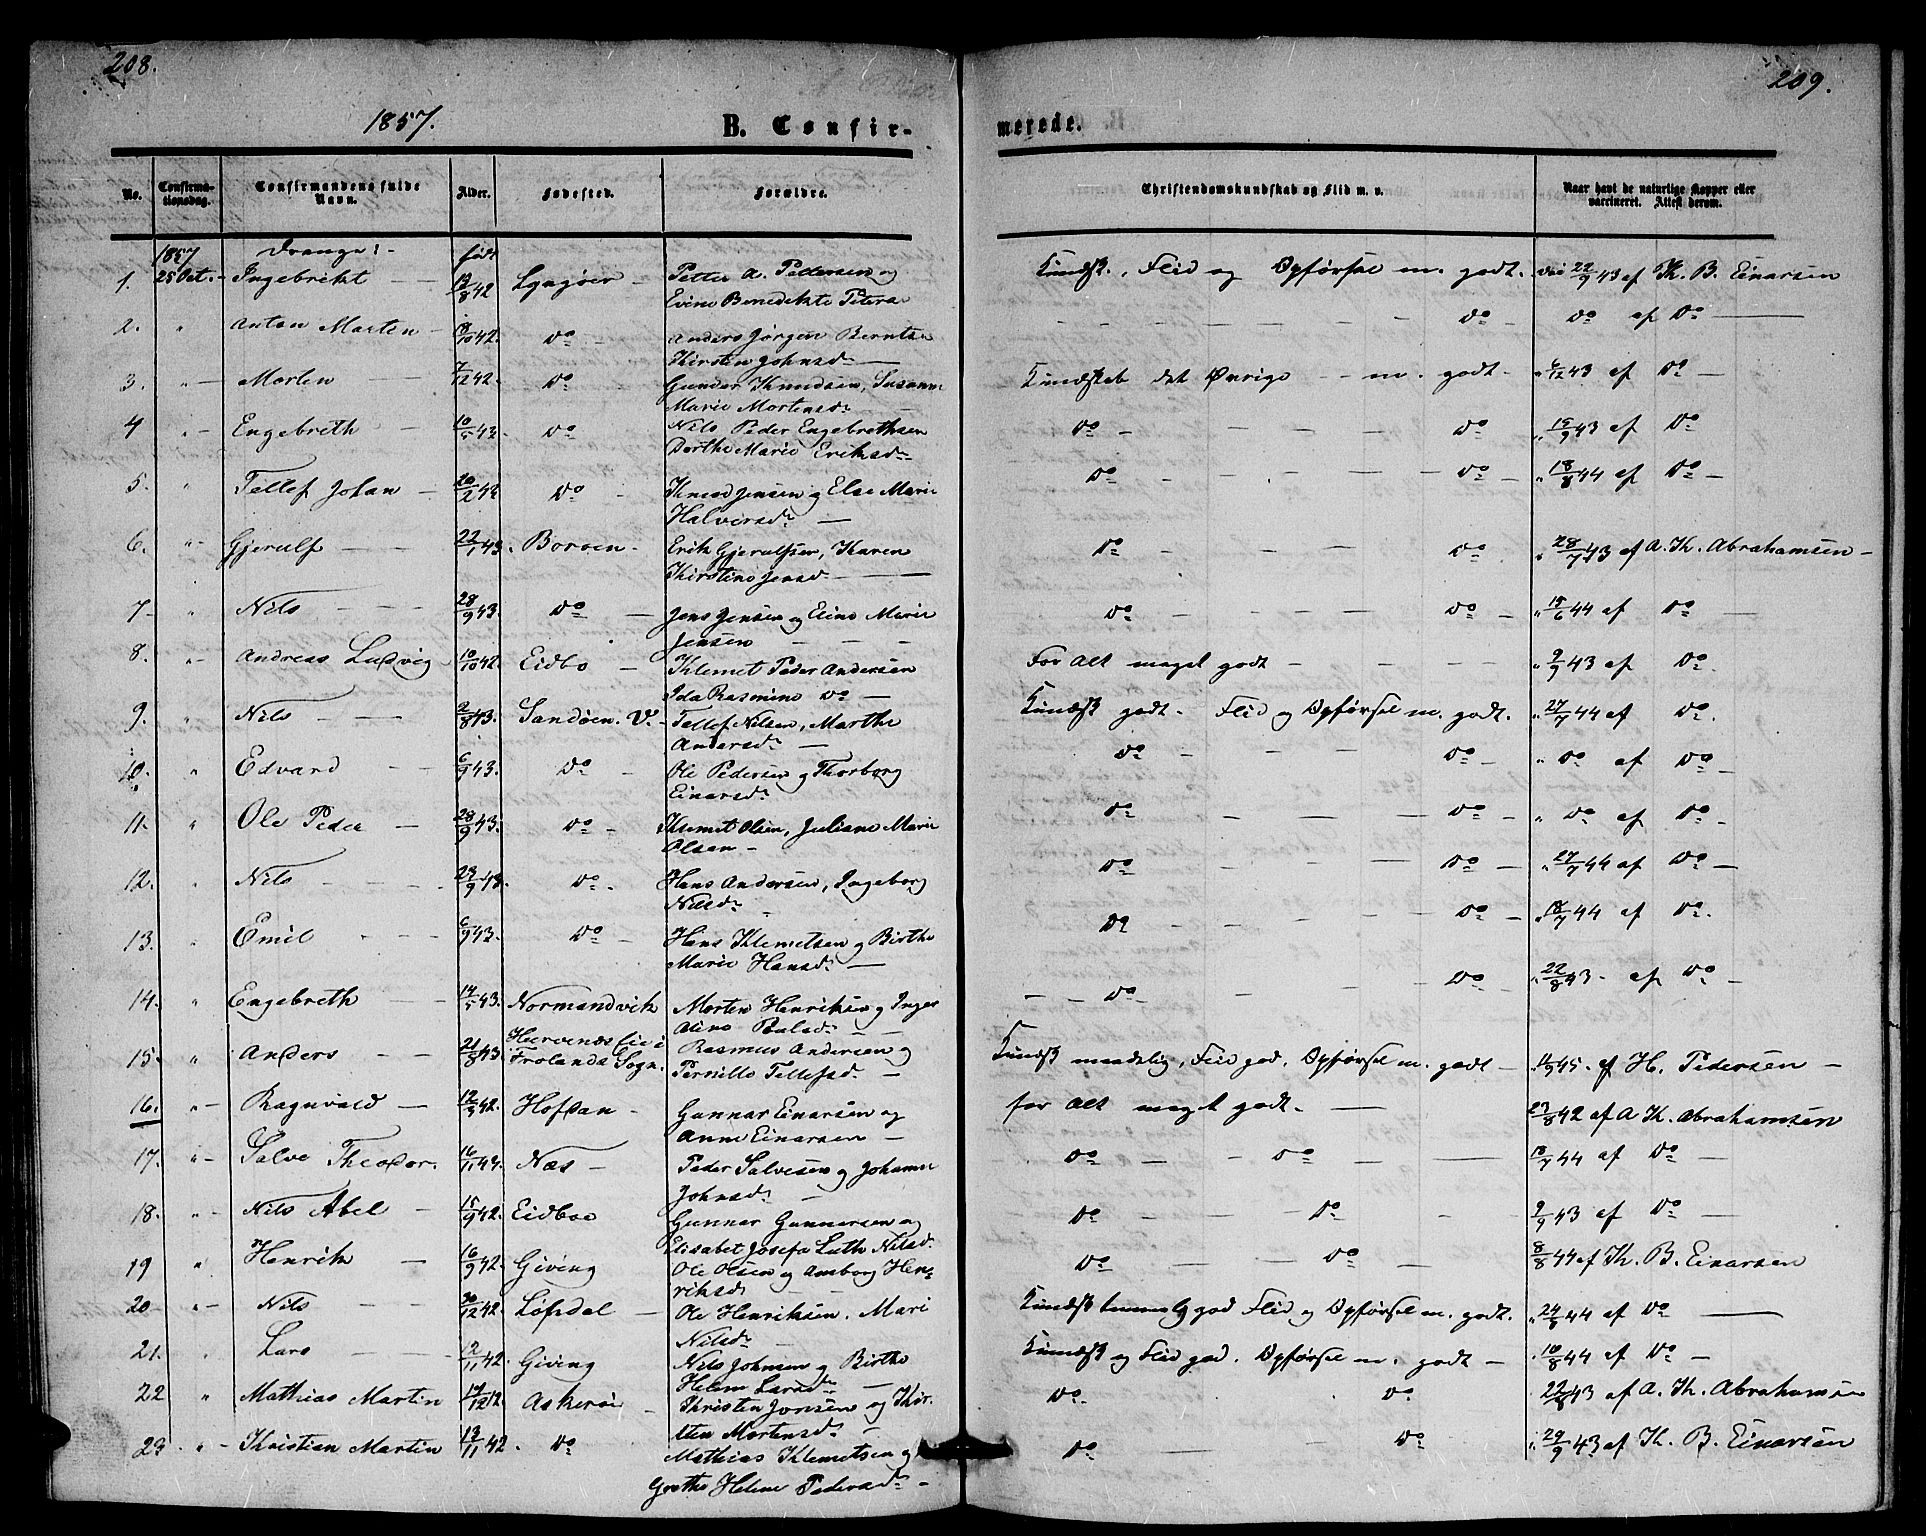 208.
209.
1857.
B. Confir-
merede.
No.
Confirma-
tionsdag.
Confirmandens fulde
Navn.
Alder.
Fødested.
Forældre.
Christendomskundskab og Flid m. v.
Naar havt de naturlige Kopper eller
vaccineret. Attest derom.
1857 Drenge:- født
1. 25 Oct. - Ingebrikt 13/8 42 Lyngöer - Petter A. Pettersen og Kundsk., Flid og Opførsel m. godt. 22/9 43 af Th. B. Einarsen
Evine Benedikte Peters
2. " Anton Marten - 18/10 42. Do - Anders Jörgen Berntsen Do Do af Do
Kirsten Johnsd.
3. " - Morten 7/12 42. Do Gunder Knudsen, Susanne Kundskab det Øvrige - m. godt - " 6/12 43 af Do -
Marie Mortensd.
4 " - Engebreth - 10/5 43. Do Nils Peder Engebrethsen Do - Do - " 15/9 43 af Do
Dorthe Marie Eriksd.
5. " Tellef Johan - 20/2 43 Do - Knud Jensen og Else Marie Do Do - " 18/8 44 af Do -
Halvorsd.
6. " - Gjerulf 22/1 43. Boröen - Erik Gjerulfsen, Karen Do - Do " 28/7 43 af A. Th. Abrahamsen -
Kirstine Jensd.
7 - " Nils 28/9 43. Do Jens Jensen og Eline Marie Do Do - " 15/6 44 af Do
Jensen
8. " - Andreas Ludvig 10/10 42. Eidbo - Klemet Peder Andersen For Alt meget godt - " 9/9 43 af Do.
Ida Rasmine Do -
9. " Nils 2/8 43. Sandöen. V. - Tellef Nilsen, Marthe Kundsk godt - Flid og Opførsel m. godt. " 27/7 44 af Do.
Andersd.
10. " Edvard 6/9 43. Do - Ole Pedersen og Thorborg Do - Do - " Do af Do -
Einarsd.
11. " Ole Peder - 28/9 43. Do - Klemet Olsen, Juliane Marie Do Do - " Do af Do -
Olsen -
12. " Nils 23/9 43. Do - Hans Andersen, Ingeborg Do Do - " 27/7 44 af Do -
Nilsd.
13. " Emil 6/9 43. Do - Hans Klemetsen og Birthe Do Do - " 18/7 44 af Do.
Marie Hansd. -
14. " Engebreth 14/5 43. Normandvik Morten Henriksen og Inger Do - Do - " 22/8 43 - af Do -
Aline Pålsd.
15. " Anders 21/8 43. eie i Rasmus Andersen og Kundsk maadelig, Flid god. Opførsel m. godt - 45. af H. Pedersen -
Frolands Sogn. Pernille Tellefsd. -
16. " - Ragnvald - 12/3 42. Hofdan - Gunnar Einarsen og for Alt meget godt. - 23/8 42 af A Th. Abrahamsen
Anne Einarsen -
17. " - Salve Theodor. 16/11 42. Næs - Peder Salvesen og Johanne Do - Do 18/7 44 af Do -
Johnsd.
18. " - Nils Abel - 15/9 42. Eidboe Gunnar Gunnarsen og Do Do 9/9 43 af Do -
Elisabet Josefa Luth Nilsd.
19 " Henrik - 16/9 42. Giving Ole Olsen og Amborg Hen- Do Do 8/8 44 af Th. B. Einarsen
riksd.
20 - " - Nils 30/12 42. Löfsdal - Ole Henriksen. Mari Kundsk temmelig god Flid og Opførsel m. godt. " 24/8 44 af Do
Nilsd. -
21. " Lars 12/11 42. Giving Nils Johnsen og Birthe Kundsk og Flid god. Opførsel m. godt - 10/8 44 af Do -
Helene Larsd. -
22 " Mathias Martin 14/12 42. Askeröi - Christen Jonsen og Kir- Do. Do 22/8 43 af A. Th. Abrahamsen
sten Mortensd.
23 - " - Kristian Martin 13/11 42. Do Mathias Klemetsen og Do Do - 29/9 43 af Th. B. Einarsen
Grethe Helene Pedersd. -